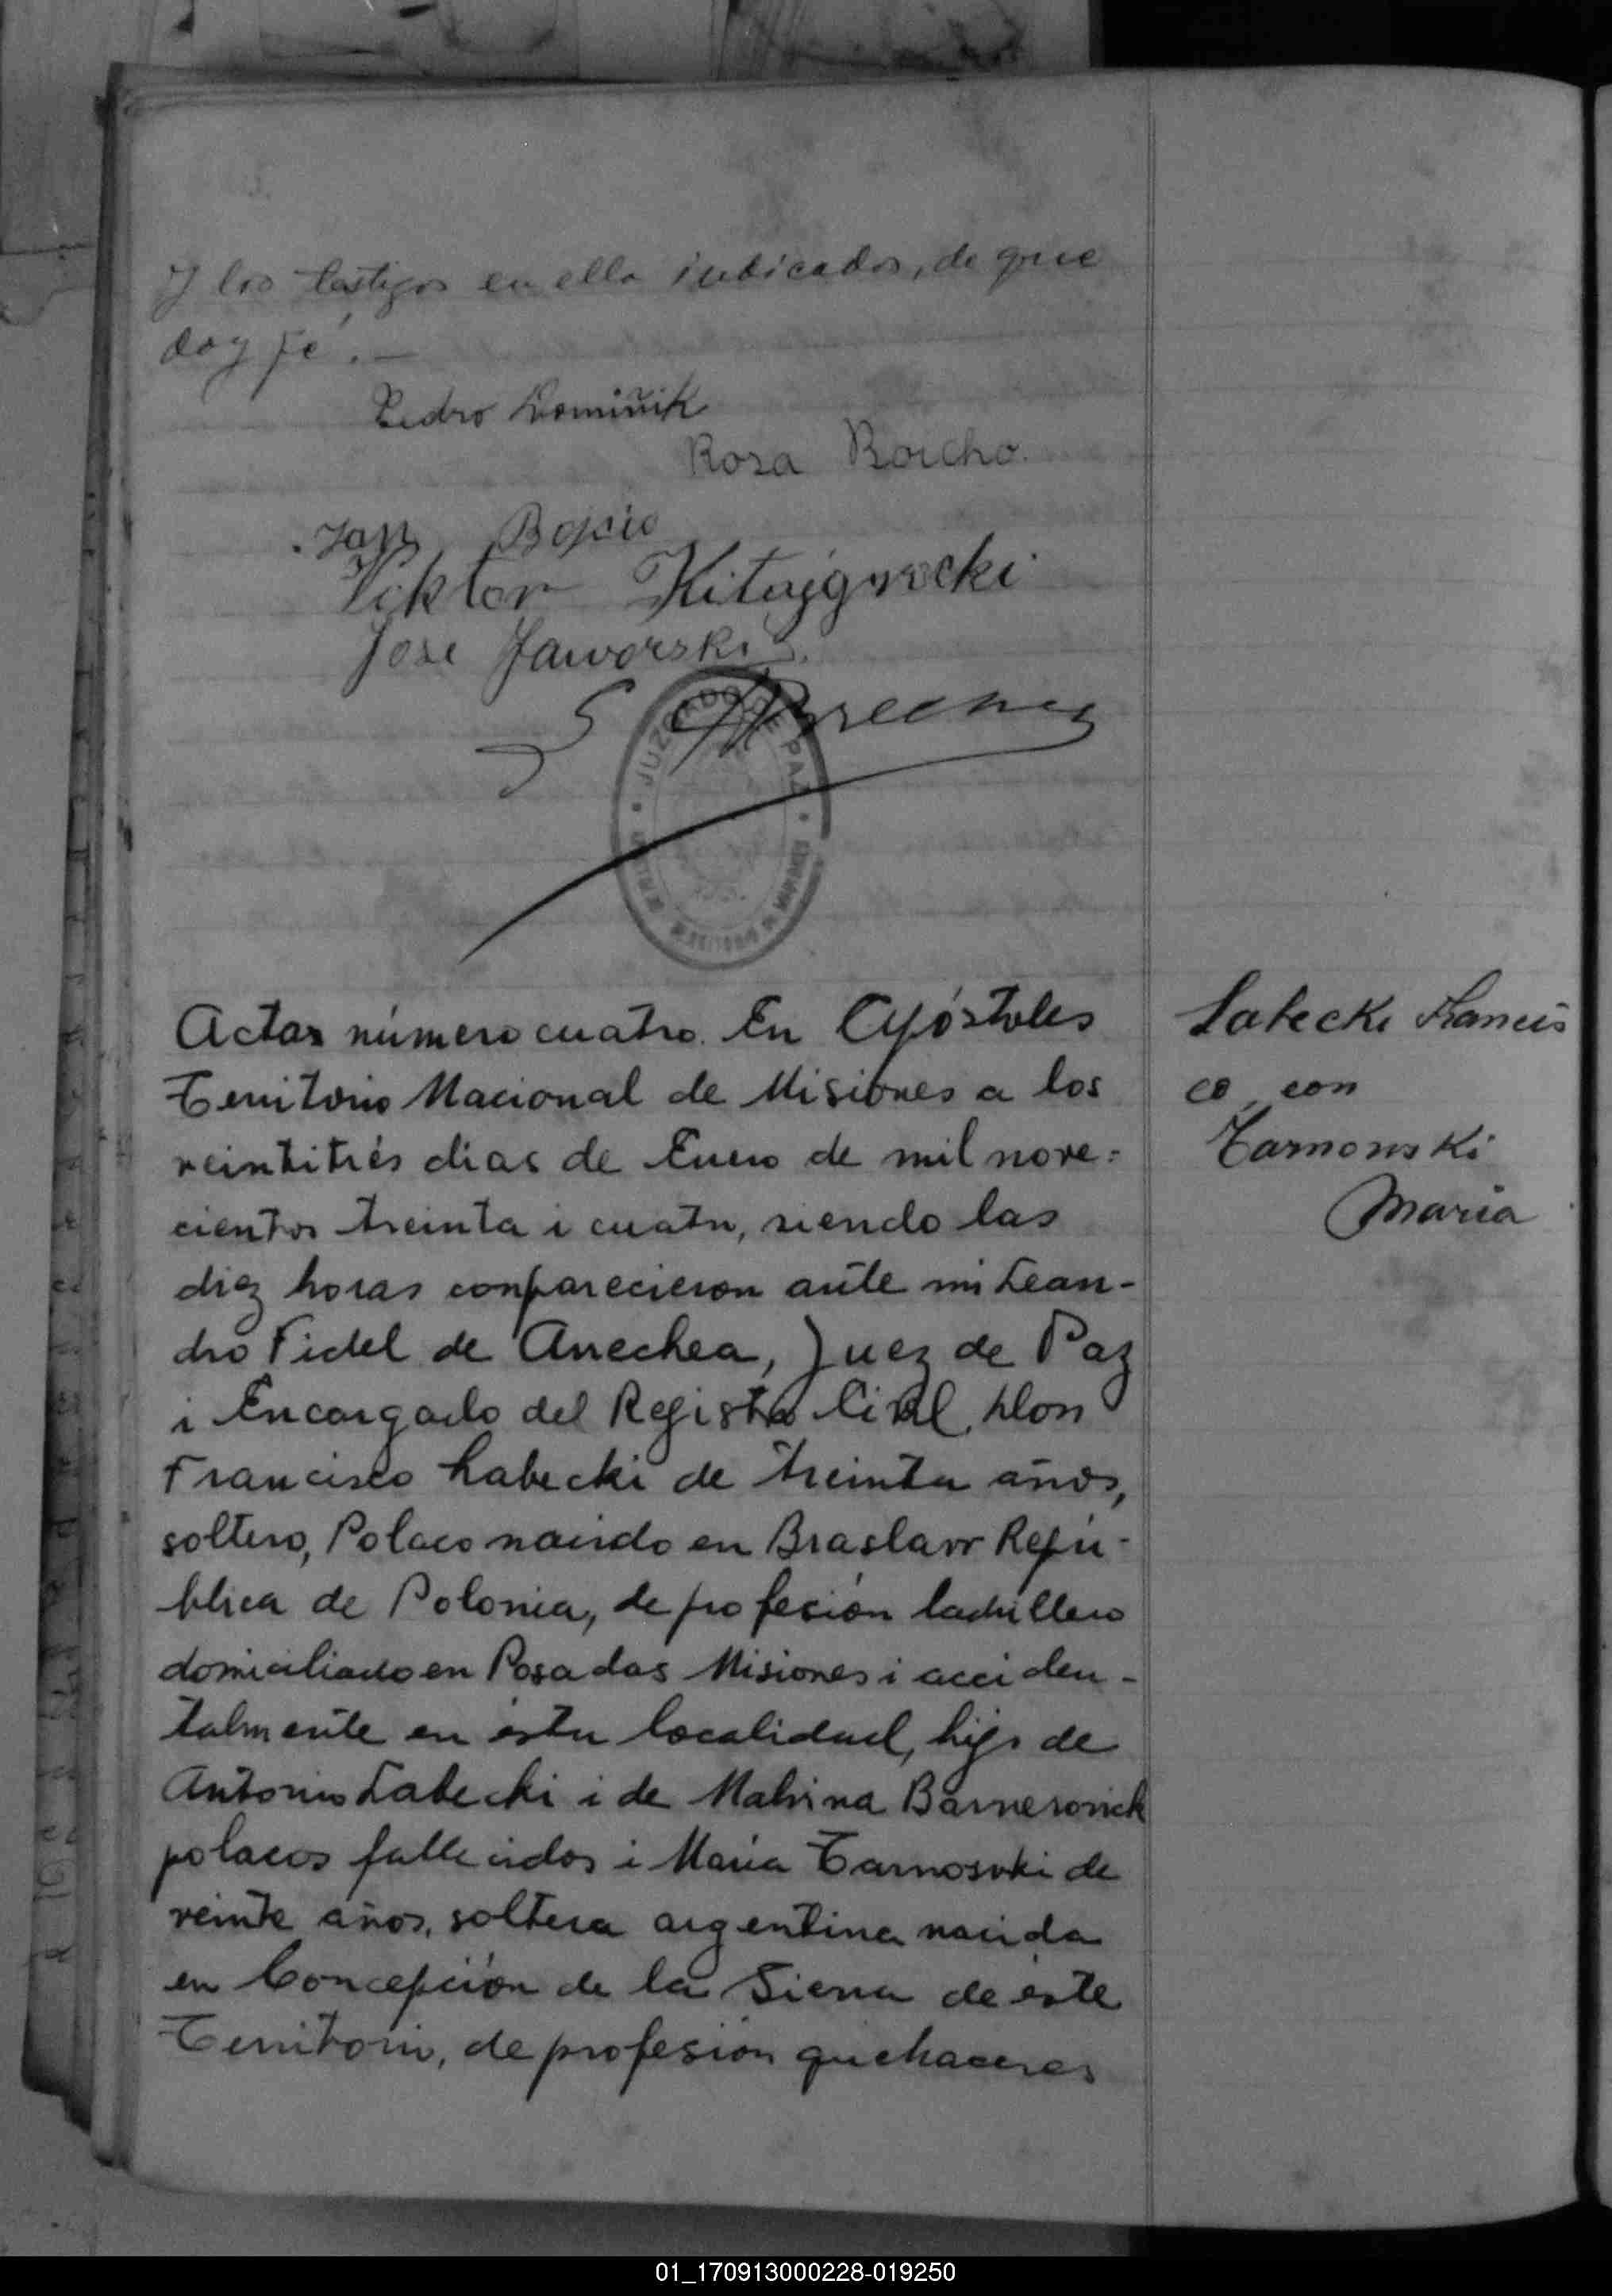 y los testigos en ella indicados, de que
doy fé.—
Pedro Dominik
Rosa Boicho.
Jan
Viktor Kitajgrocki
José Jaworski
JUZGADO DE PAZ
Actas número cuatro. En Apóstoles
Territorio Nacional de Misiones a los
veintitrés dias de Enero de mil nove=
cientos treinta i cuatro, siendo las
diez horas conparecieron ante mi Lean-
dro Fidel de Arrechea, Juez de Paz
i Encargado del Registro Civil, Don
Francisco Labecki de treinta años,
soltero, Polaco nacido en Braslavv Repú-
blica de Polonia, de profeción ladrillero
domiciliado en Posadas Misiones i acciden-
talmente en ésta localidad, hijo de
Antonio Labecki i de Malvina Barnerovick
polacos fallecidos i María Tarnosvki de
veinte años, soltera argentina nacida
en Concepción de la Sierra de éste
Territorio, de profesión quehaceres
Labecki Francis
co con
Tarnowski
Maria
01_170913000228-019250